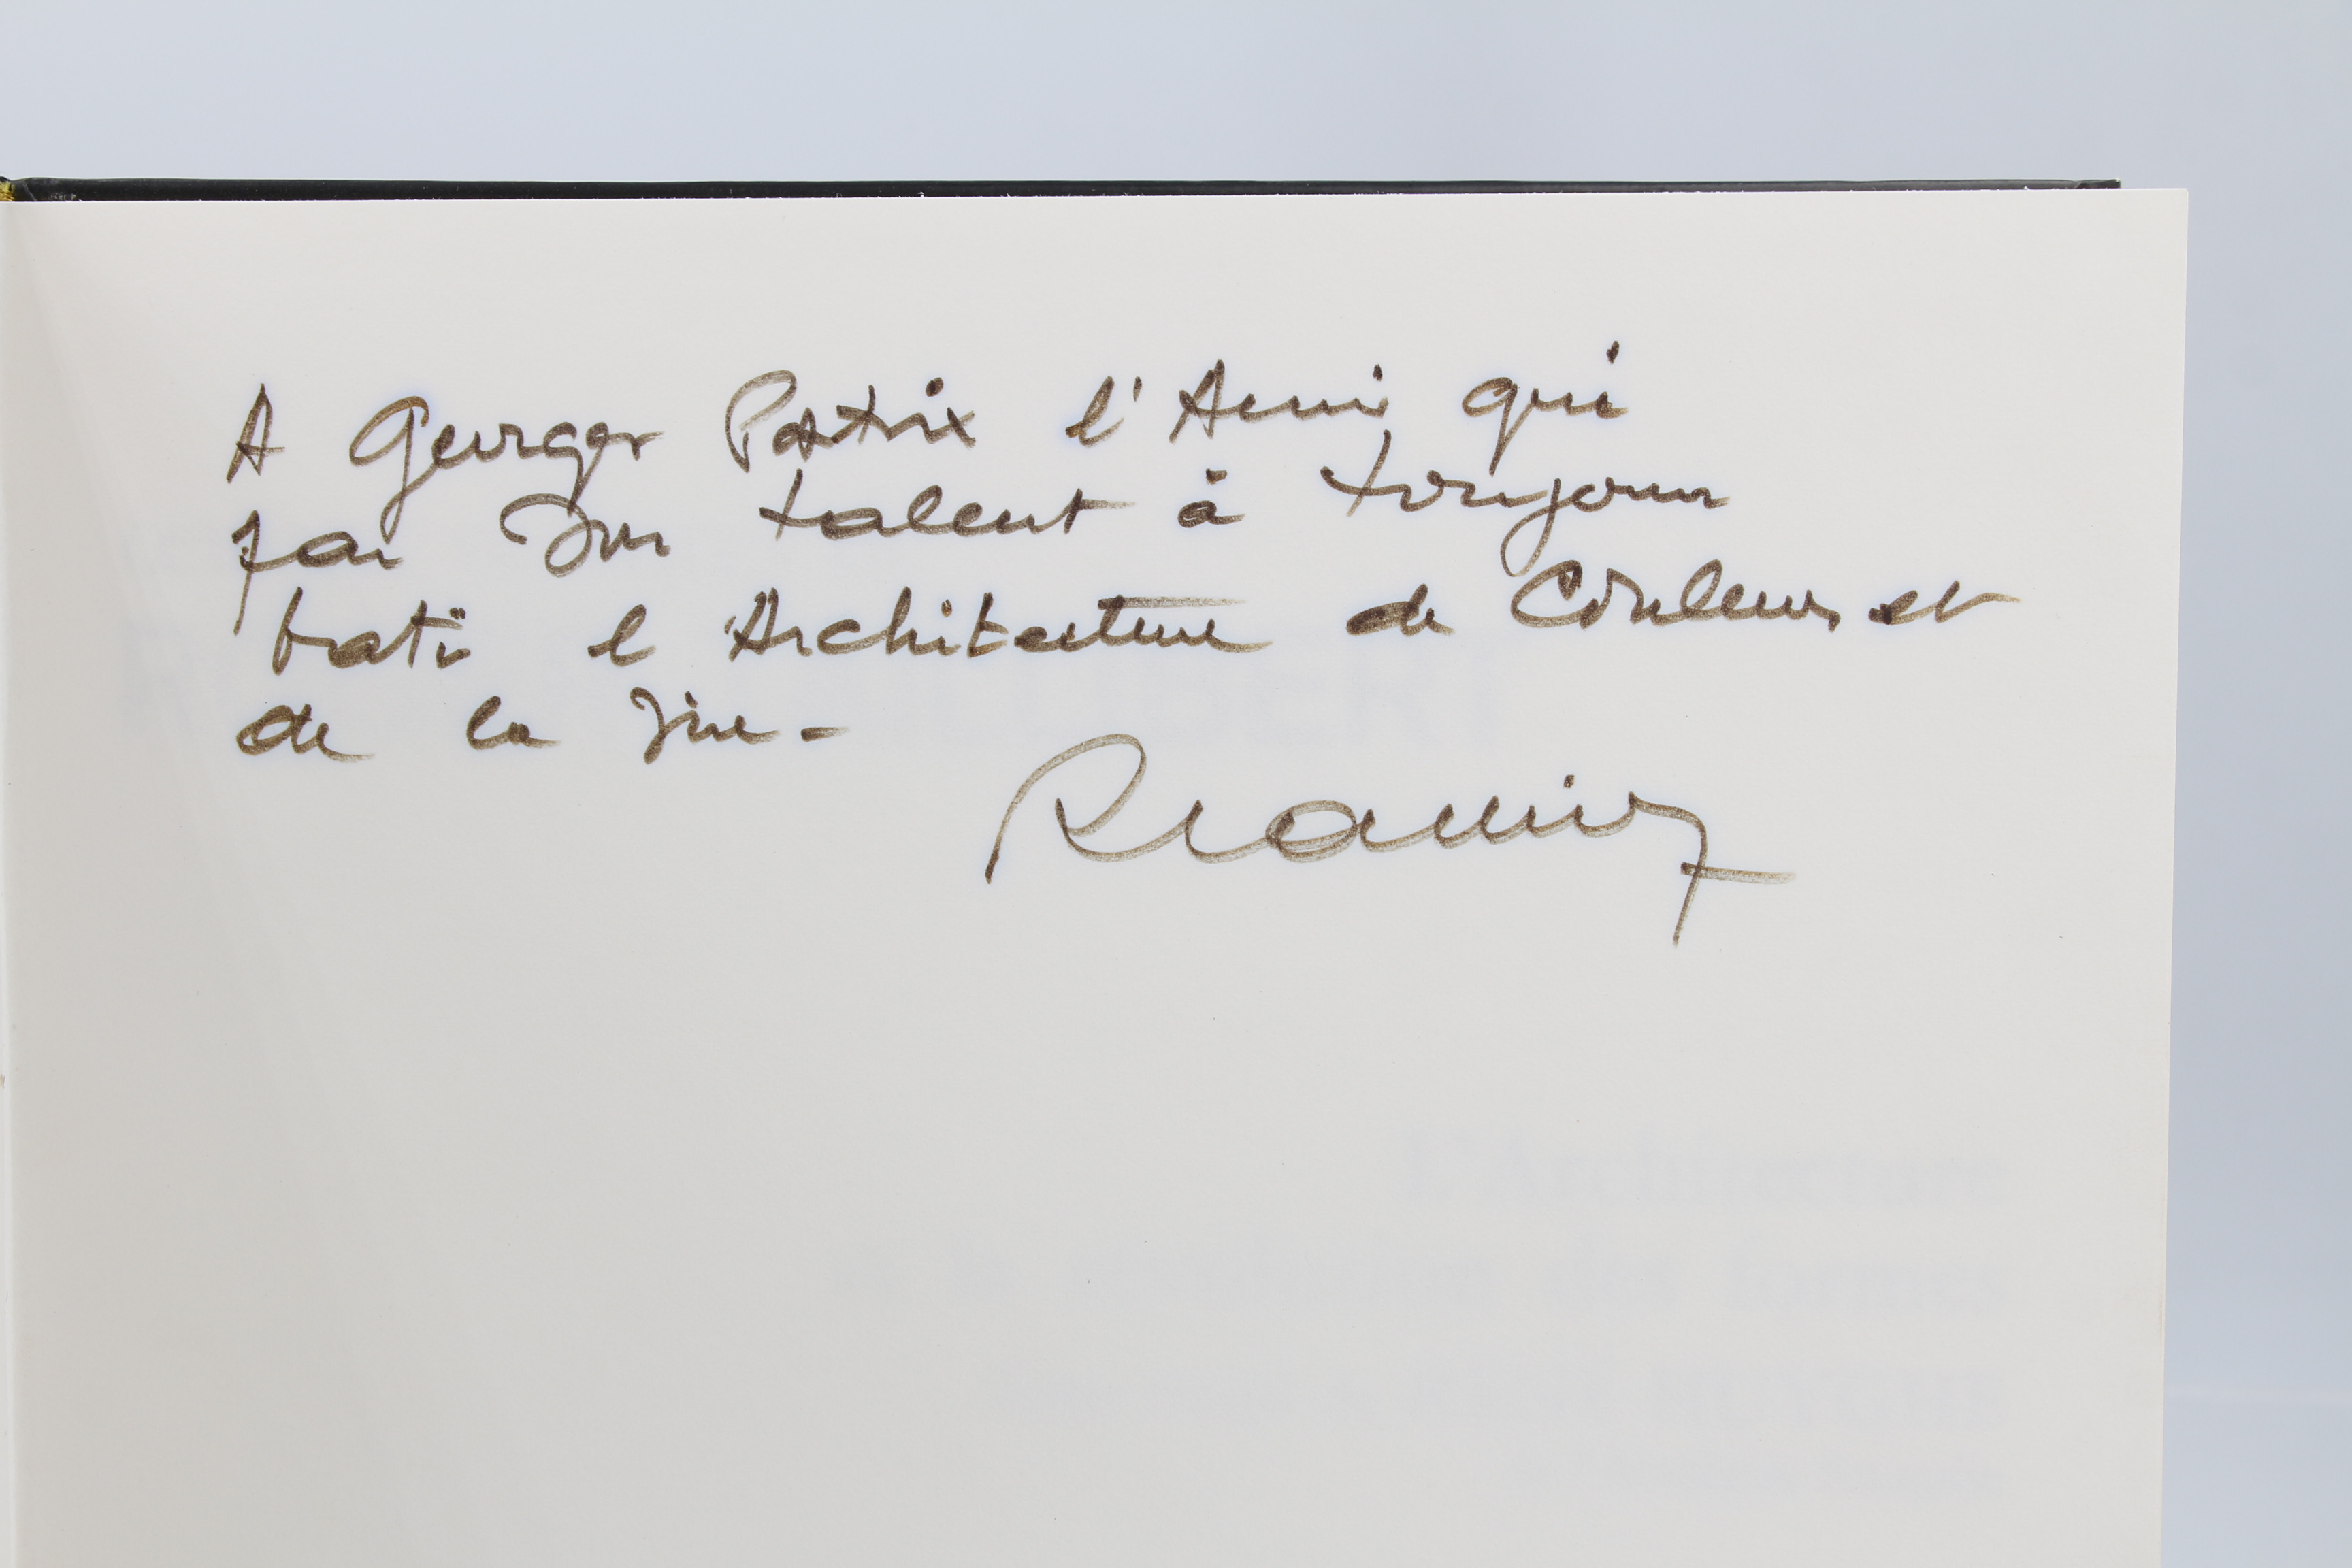 A Georges Patrix l'Ami qui
par son talent à toujours
bati l'Architecture de Couleurs et
de la Vie -